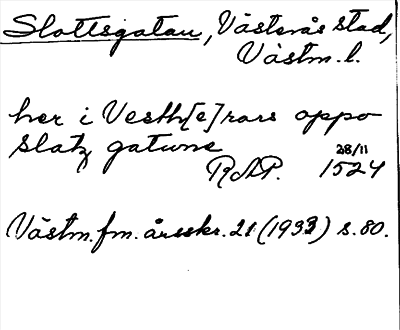 Slottsgatan, Västerås stad,
Västm. l.
her i Vesth[e]rars oppo
slatz gatwne
28/11
RAP. 1524
Västm. fm. årsskr. 21 (1933) s. 80.